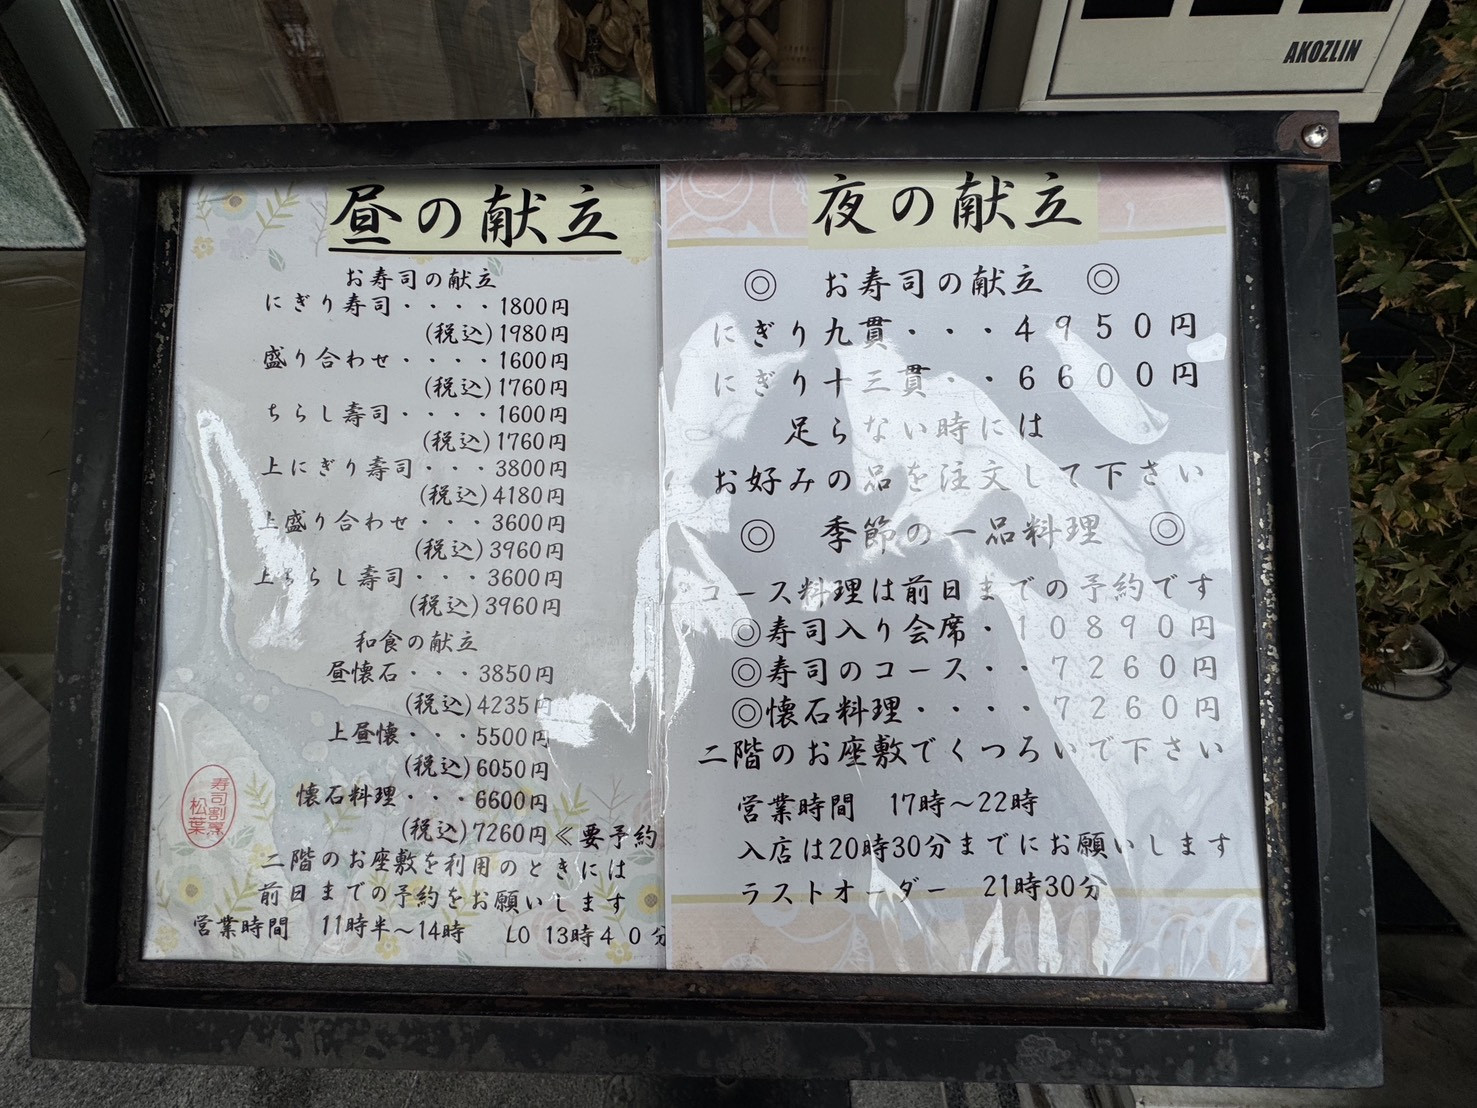 AKOZLIN
昼の献立
お寿司の献立
にぎり寿司・・・・1800円
(税込)1980円
盛り合わせ・・・・1600円
(税込)1760円
ちらし寿司・・・・1600円
(税込)1760円
上にぎり寿司・・・3800円
(税込)4180円
上盛り合わせ・・・3600円
(税込)3960円
上ちらし寿司・・・3600円
(税込)3960円
和食の献立
昼懐石・・・3850円
(税込)4235円
上昼懐・・・5500円
(税込)6050円
懐石料理・・・6600円
(税込)7260円≪要予約
二階のお座敷を利用のときには
前日までの予約をお願いします
営業時間 11時半～14時 LO 13時40分
寿司割烹
松葉
夜の献立
◎ お寿司の献立 ◎
にぎり九貫・・・4950円
にぎり十三貫・・6600円
足らない時には
お好みの品を注文して下さい
◎ 季節の一品料理 ◎
コース料理は前日までの予約です
◎寿司入り会席・10890円
◎寿司のコース・・7260円
◎懐石料理・・・・7260円
二階のお座敷でくつろいで下さい
営業時間 17時～22時
入店は20時30分までにお願いします
ラストオーダー 21時30分